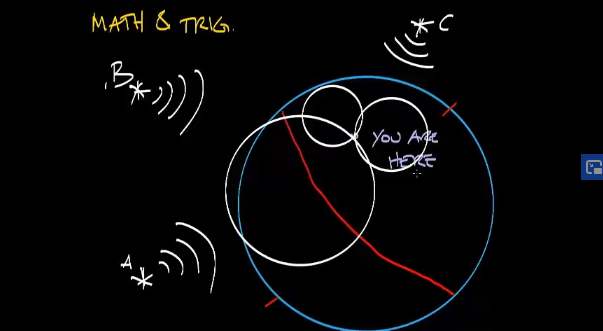 MATH & TRIG.
C
B
YOU ARE
HERE
A